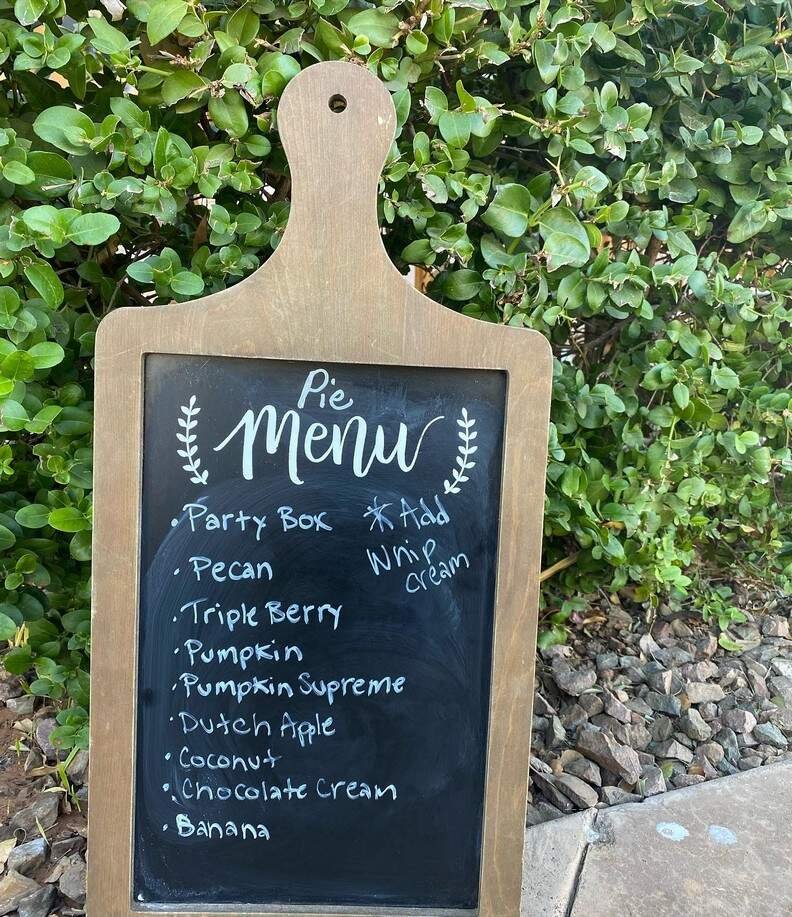 Pie
Menu
· Party Box
* Add
Whip
cream
· Pecan
· Triple Berry
· Pumpkin
· Pumpkin Supreme
· Dutch Apple
· Coconut
· Chocolate Cream
· Banana